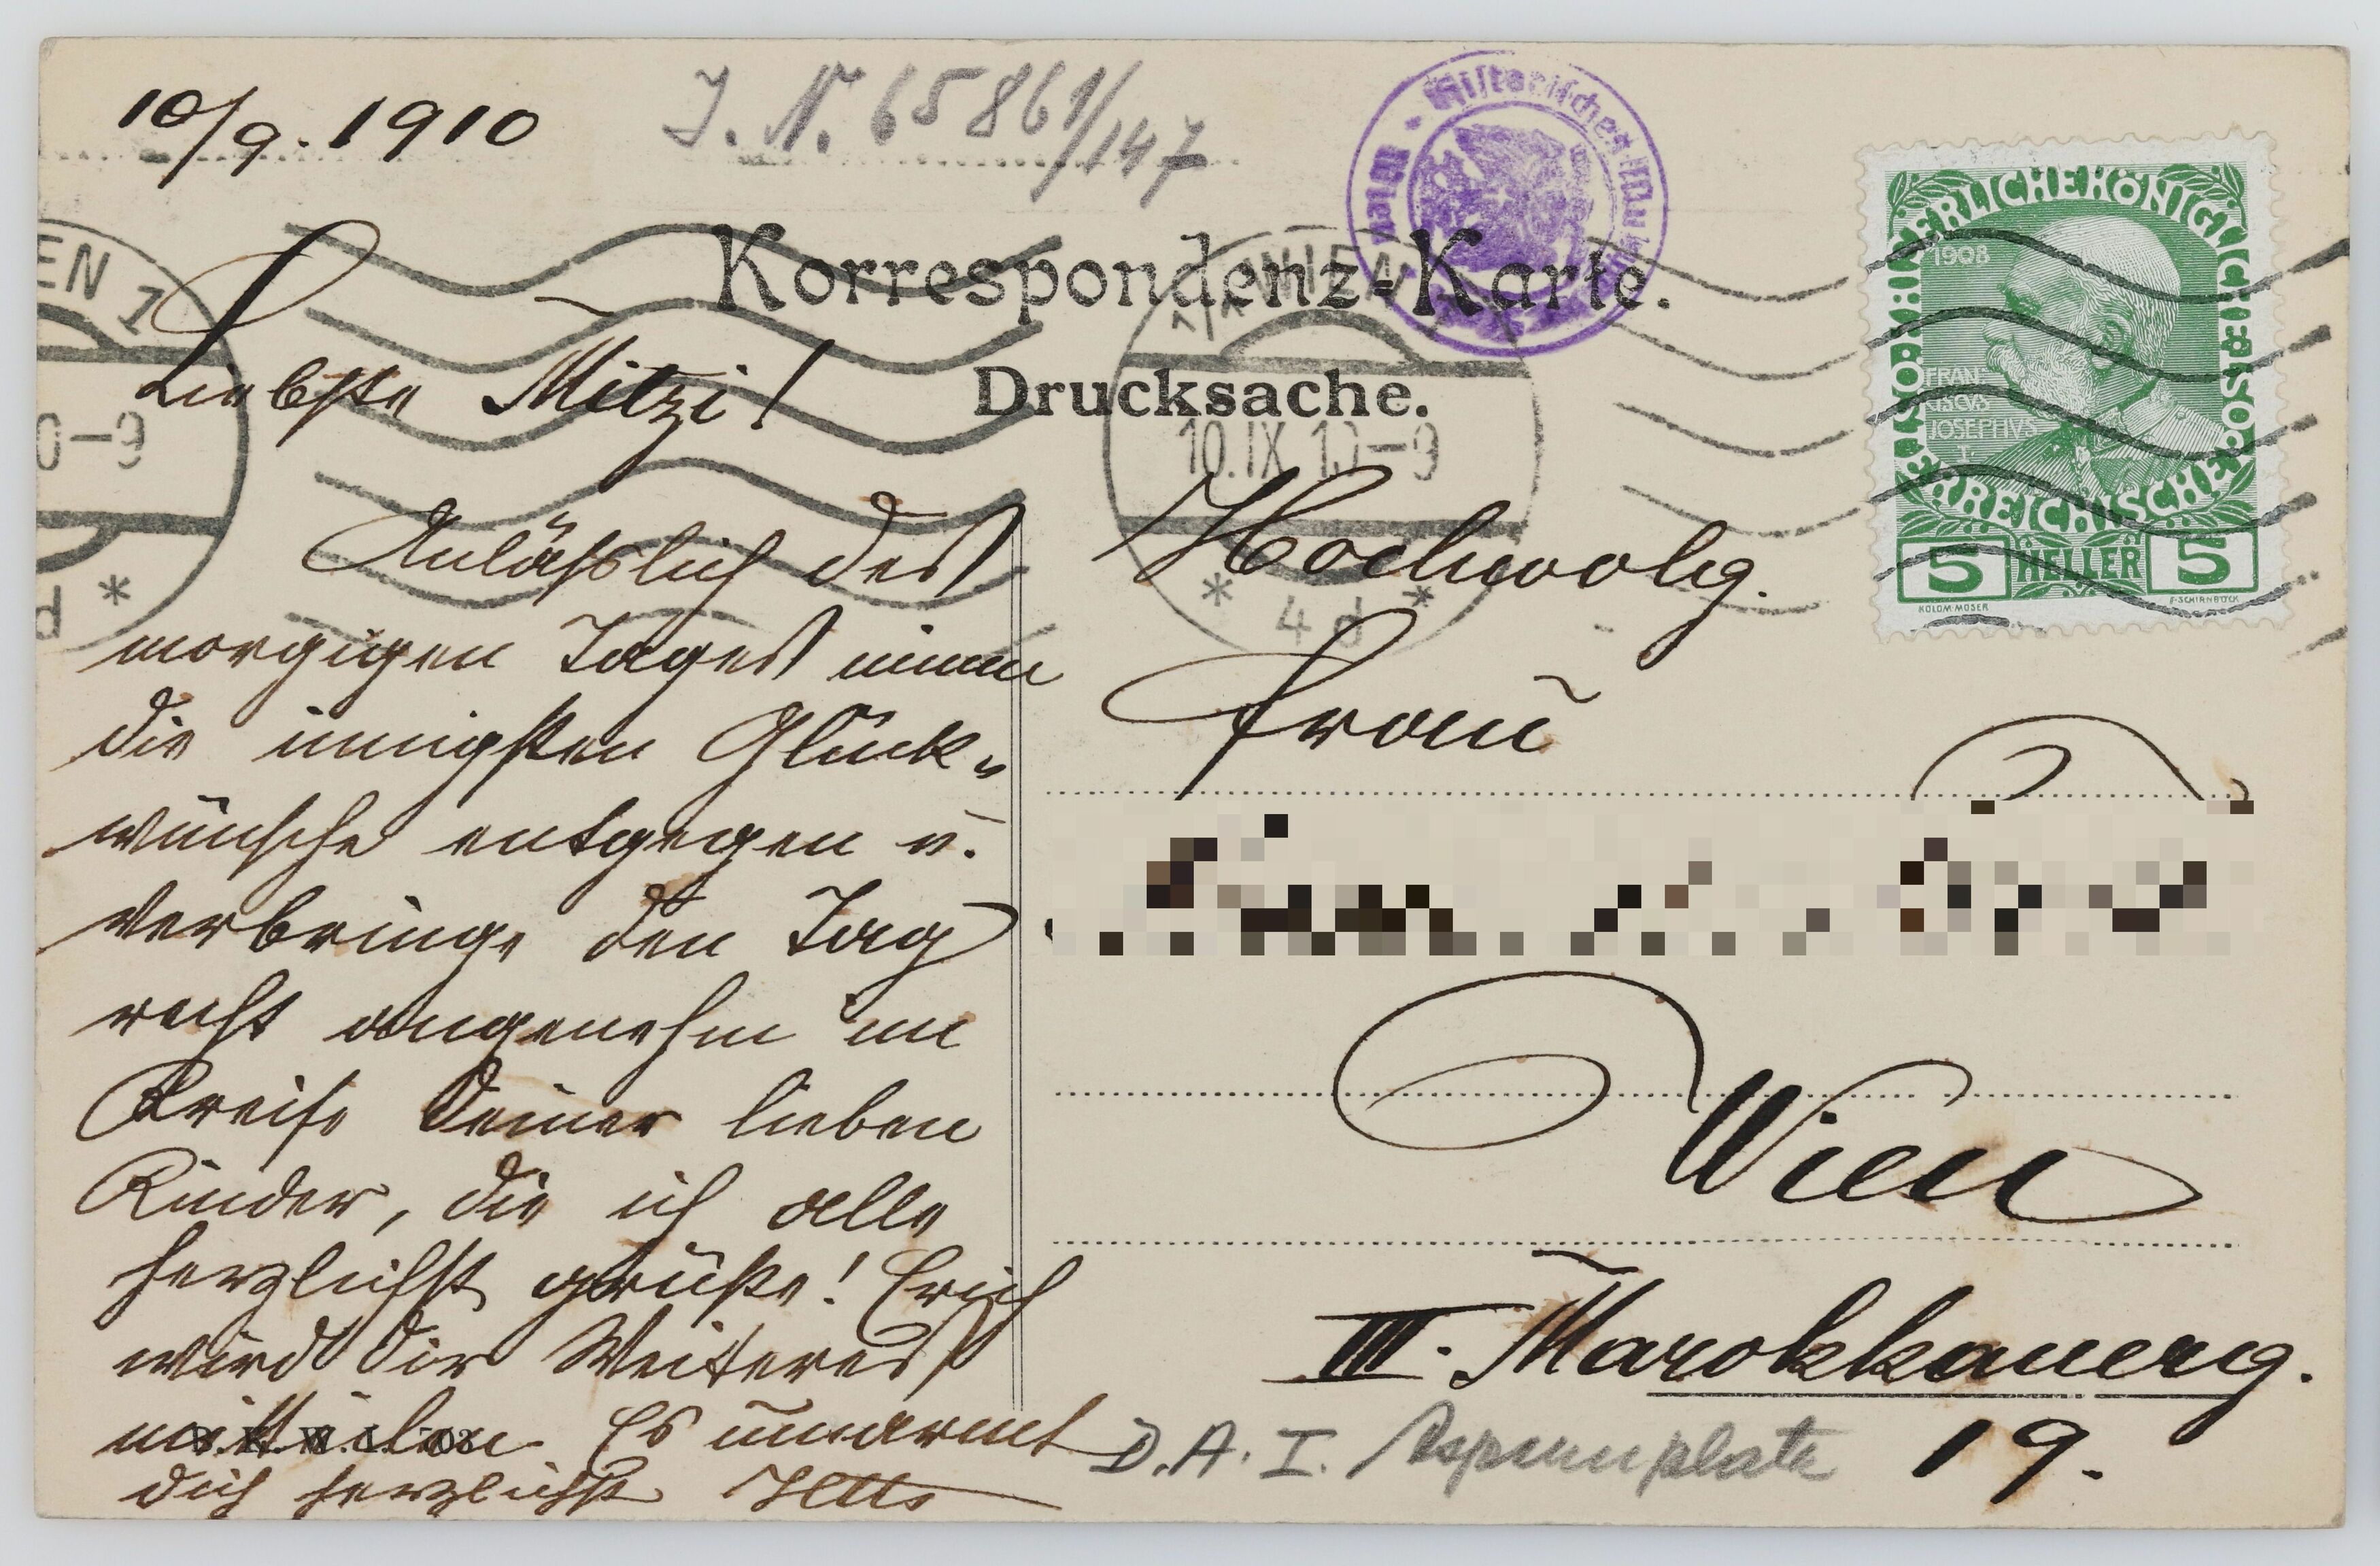 10/9. 1910
J. N. 65861/147
Historisches Museum
Wien
Korrespondenz-Karte.
Drucksache.
EN 1
0-9
WIEN
10.IX 10-9
* 4d *
KAISERLICHE KÖNIGLICHE ÖSTERREICHISCHE POST
1908
FRAN
CISCVS
IOSEPHVS
I
5 HELLER 5
KOLOM·MOSER
F·SCHIRNBÖCK
Liebste Mitzi!
Anläßlich des
morgigen Tages nimm
die innigsten Glück-
wünsche entgegen u.
verbringe den Tag
recht angenehm im
Kreise Deiner lieben
Kinder, die ich alle
herzlichst grüße! Erich
wird Dir Weiteres
mitteilen. Es umarmt
Dich herzlichst
B.K.W.I.
Hochwolg.
Frau
Wien
III. Marokkanerg.
19.
D.A.I. Aspernplatz